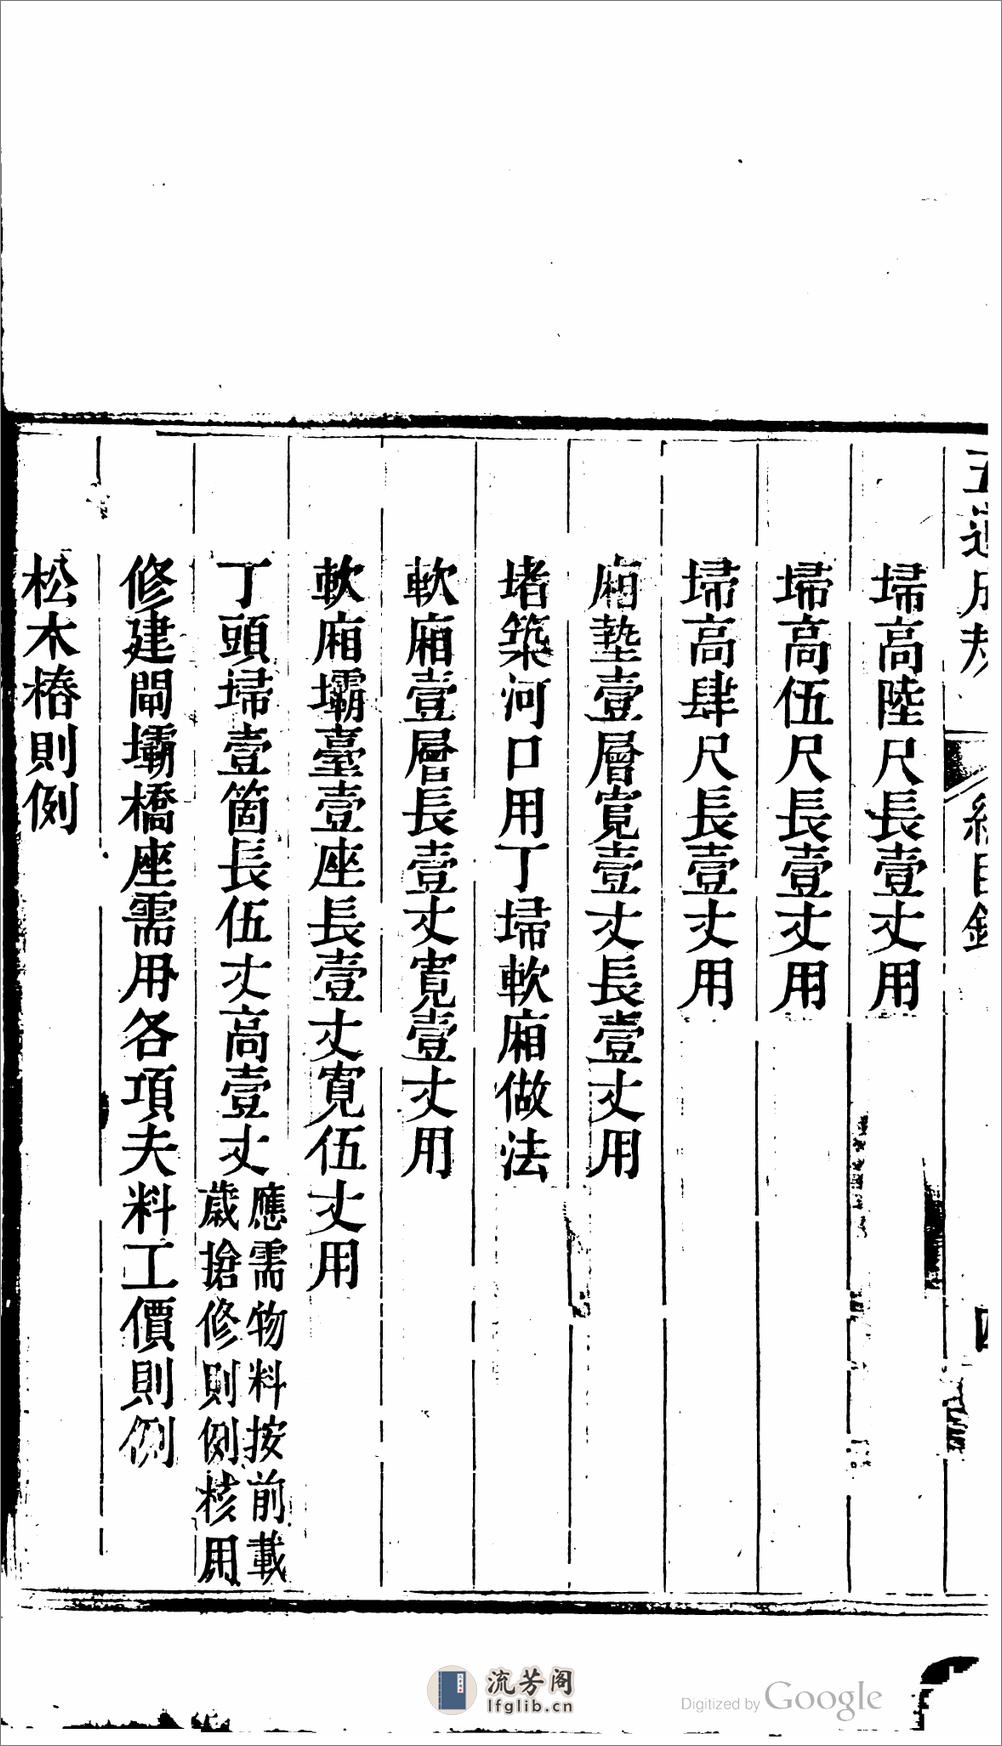 埽高陸尺長壹丈用
埽高伍尺長壹丈用
埽高肆尺長壹丈用
廂墊壹層寬壹丈長壹丈用
堵築河口用丁埽軟廂做法
軟廂壹層長壹丈寬壹丈用
軟廂壩臺壹座長壹丈寬伍丈用
丁頭埽壹箇長伍丈高壹丈
應需物料按前載
歲搶修則例核用
修建閘壩橋座需用各項夫料工價則例
松木樁則例
流芳阁
lfglib.cn
Digitized by Google